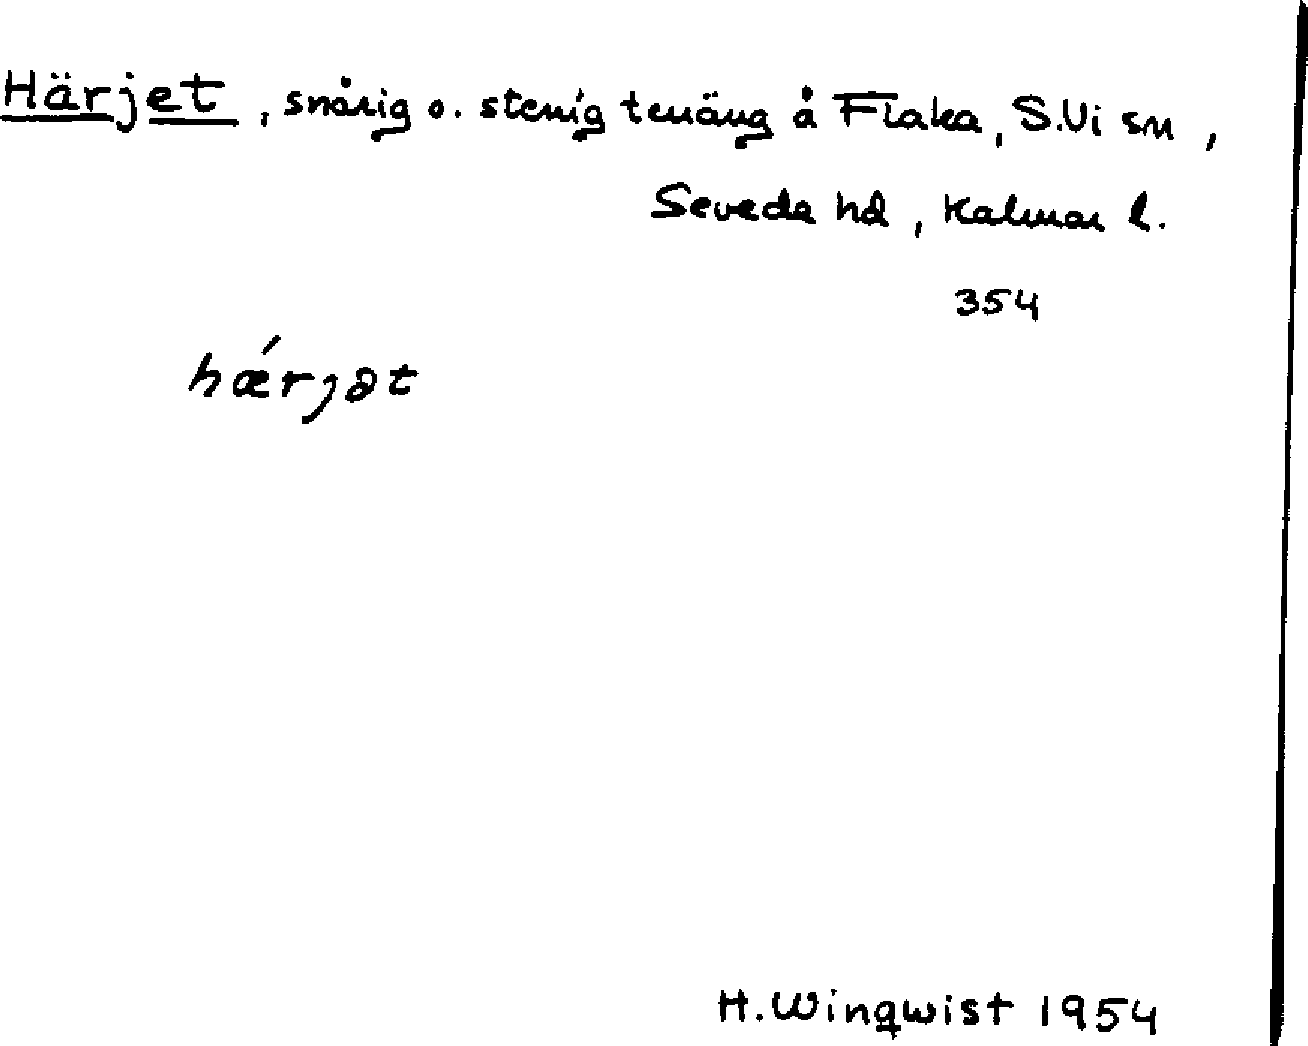 Härjet, snårig o. stenig tenäng å Flaka, S.Vi sn,
Sevede hd, Kalmar l.
354
hǽrjət
H. Winqwist 1954